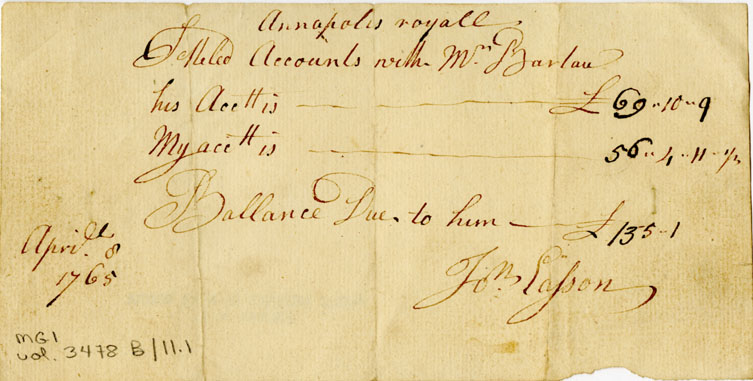 Annapolis royall
Setteled Accounts with Mr. Bartau
his Acctt is £ 69 " 10 " 9
My acctt is 56 " 4 " 11 " 1/2
Ballance Due to him £ 13 5 " 1
Aprill 8
1765
Jon. Easson
MG1
vol. 3478 B/11.1